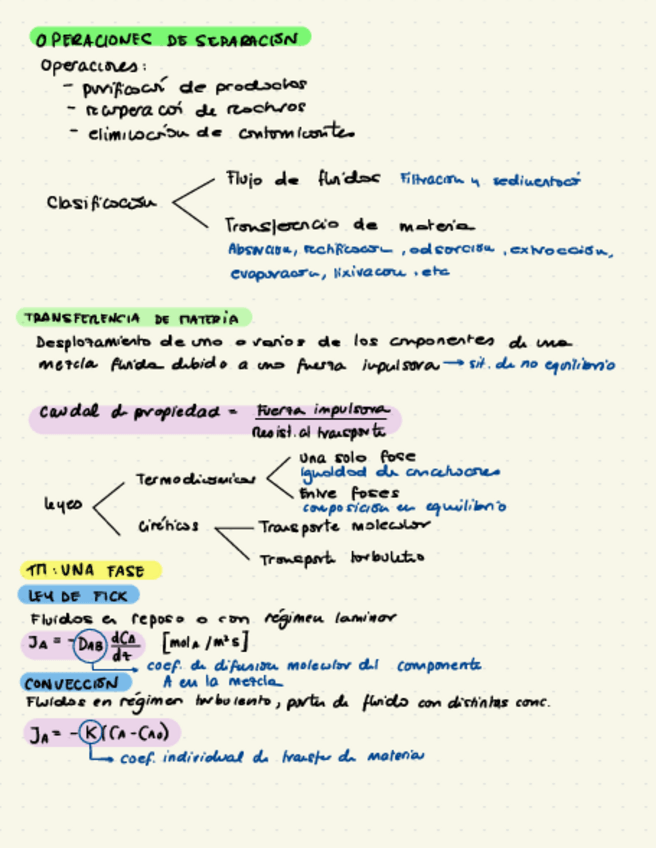 OPERACIONES DE SEPARACIÓN
Operaciones:
- purificación de productos
- recuperación de reactivos
- eliminación de contaminantes
Clasificación
Flujo de fluidos Filtración y sedimentación
Transferencia de materia
Absorción, rectificación, adsorción, extracción,
evaporación, lixiviación, etc
TRANSFERENCIA DE MATERIA
Desplazamiento de uno o varios de los componentes de una
mezcla fluida debido a una fuerza impulsora → sit. de no equilibrio
Caudal de propiedad = Fuerza impulsora
Resist. al transporte
Leyes
Termodinámicas
Una sola fase
Igualdad de concentraciones
Entre fases
composición en equilibrio
Cinéticas
Transporte molecular
Transporte turbulento
TM: UNA FASE
LEY DE FICK
Fluidos en reposo o con régimen laminar
J_A = -D_AB dC_A/dz [mol_A/m²s]
coef. de difusión molecular del componente
A en la mezcla
CONVECCIÓN
Fluidos en régimen turbulento, partes de fluido con distintas conc.
J_A = -K(C_A - C_A0)
coef. individual de transfer de materia